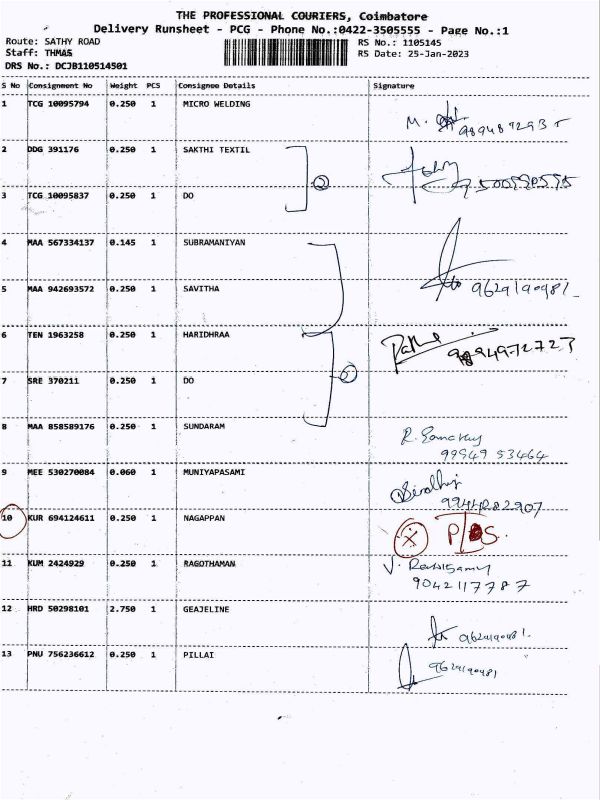 THE PROFESSIONAL COURIERS, Coimbatore
Delivery Runsheet - PCG - Phone No.:0422-3505555 - Page No.:1
Route: SATHY ROAD RS No.: 1105145
Staff: THMAS RS Date: 25-Jan-2023
DRS No.: DCJB110514501
S No Consignment No Weight PCS Consignee Details Signature
1 TCG 10095794 0.250 1 MICRO WELDING
M.
2 DDG 391176 0.250 1 SAKTHI TEXTIL
2
3 TCG 10095837 0.250 1 DO
4 MAA 567334137 0.145 1 SUBRAMANIYAN
5 MAA 942693572 0.250 1 SAVITHA 9629190981
6 TEN 1963258 0.250 1 HARIDHRAA
7 SRE 370211 0.250 1 DO
8 MAA 858589176 0.250 1 SUNDARAM
99949 53464
9 MEE 530270084 0.060 1 MUNIYAPASAMI
99442 82907
10 KUR 694124611 0.250 1 NAGAPPAN
11 KUM 2424929 0.250 1 RAGOTHAMAN
9042117787
12 HRD 50298101 2.750 1 GEAJELINE
9629190981.
13 PNU 756236612 0.250 1 PILLAI
9629190981